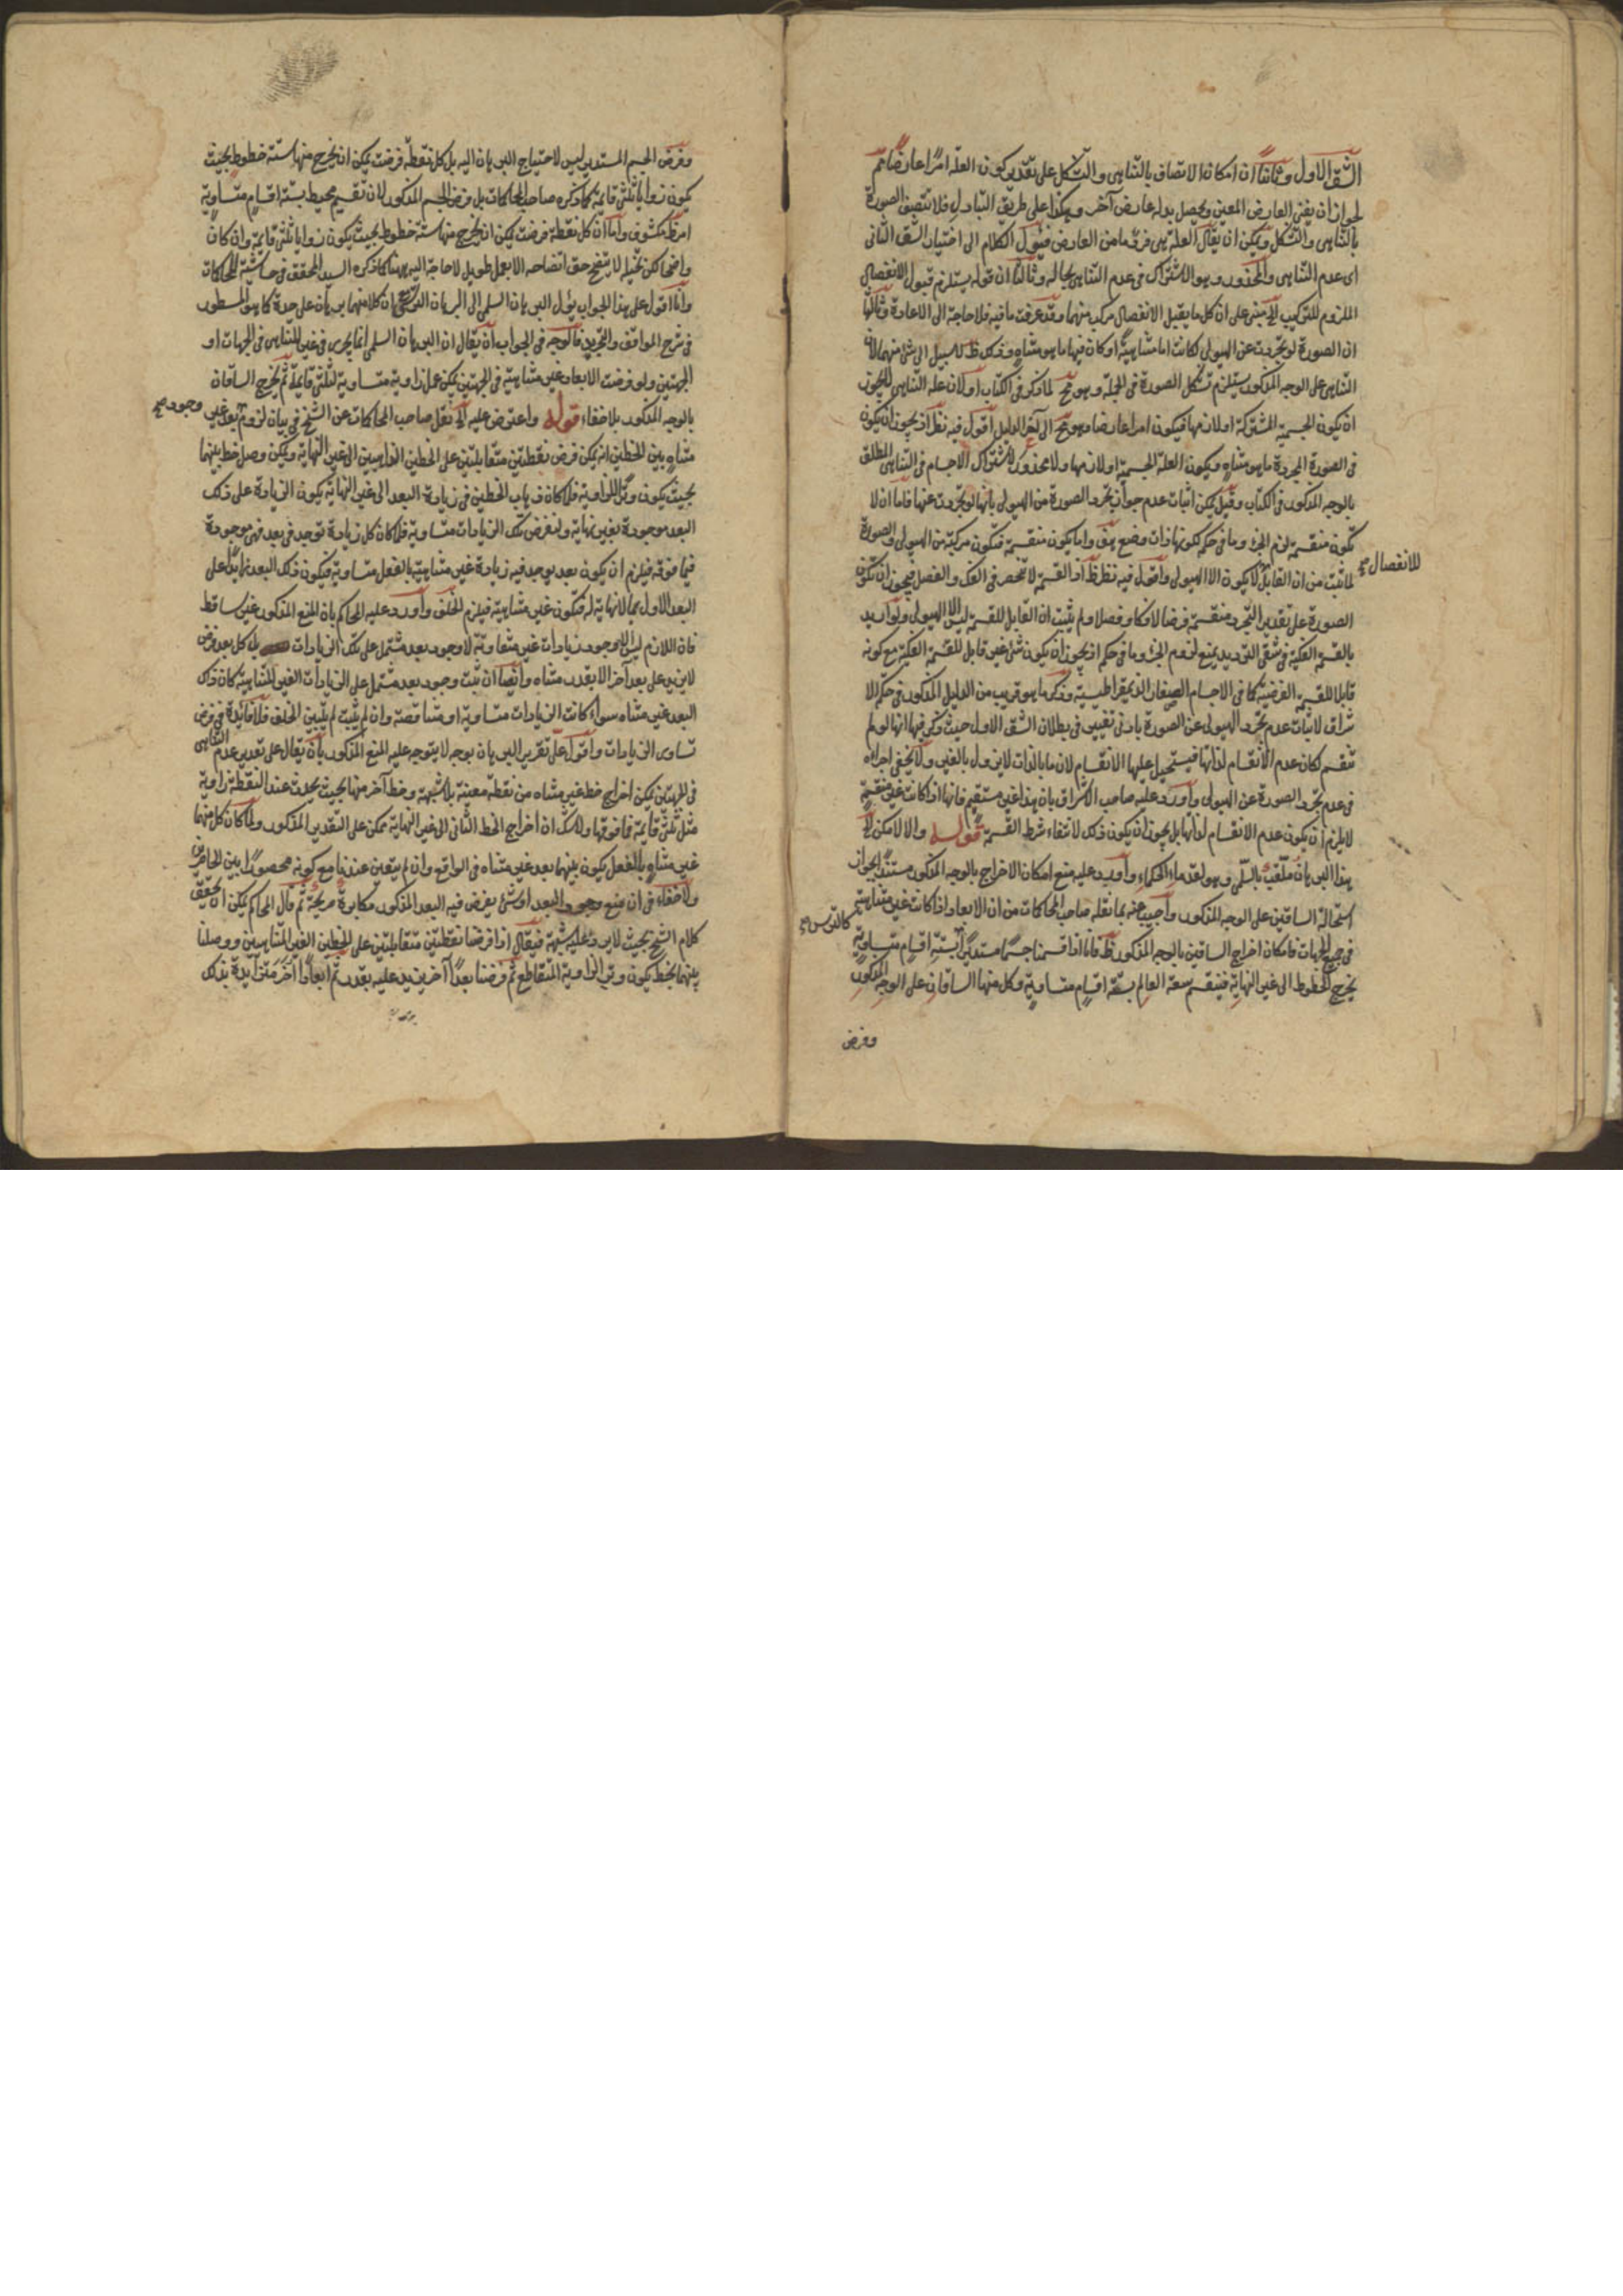 الشق الاول وثانيا ان امكان الاتصاف بالتناهى والتشكل على تقدير كون العلة امرا عارضا ثم
لجواز ان يفنى العارض المعين ويحصل بدله عارض آخر وهكذا على طريق التبادل فلا تتصف الصورة
بالتناهى والتشكل ويمكن ان يقال العلة هى فرد ما من العارض فيؤول الكلام الى اختيار الشق الثانى
اى عدم التناهى والمحذور وهو الاشتراك فى عدم التناهى بحاله وثالثا ان قوله يستلزم قبول الانفصال
الملزوم للتركيب الخ مبنى على ان كل ما يقبل الانفصال مركب منهما وقد عرفت ما فيه فلا حاجة الى الاعادة
ان الصورة لو تجردت عن الهيولى لكانت اما متناهية او كان فيها ما هو متناه وذلك ظ لا سبيل الى شئ منهما لان
التناهى على الوجه المذكور يستلزم تشكل الصورة فى الجملة وهو مح لما ذكر فى الكتاب اولا لان علة التناهى لا يجوز
ان يكون الجسمية المشتركة او لازمها فيكون امرا عارضا وهو مح الى آخر الدليل اقول فيه نظر اذ يجوز ان يكون
فى الصورة المجردة ما هو متناه ويكون العلة الجسمية او لازمها ولا محذور لاشتراك الاجسام فى التناهى المطلق
بالوجه المذكور فى الكتاب وقيل يمكن اثبات عدم جواز تجرد الصورة من الهيولى بانها لو تجردت عنها فاما ان لا
تكون منقسمة لزم الجزء وما فى حكمه لكونها ذات وضع هف واما يكون منقسمة فتكون مركبة من الهيولى والصورة
للانفصال صح
لما ثبت من ان القابل لا يكون الا الهيولى واقول فيه نظر ظ اذ القسمة لا تنحصر فى الفك والفصل فيجوز ان تكون
الصورة على تقدير التجرد منقسمة فرضا لا فكا وفصلا ولم يثبت ان القابل للقسمة ليس الا الهيولى ولو اريد
بالقسمة الفكية فى شقى الترديد يمنع لزوم الجزء وما فى حكمه اذ يجوز ان يكون شئ غير قابل للقسمة الفكية مع كونه
قابلا للقسمة الفرضية كما فى الاجسام الصغار الذيمقراطيسية وذكر ما هو قريب من الدليل المذكور فى حكمة الا
شراق لاثبات عدم تجرد الهيولى عن الصورة بادنى تغيير فى بطلان الشق الاول حيث ذكر فيها انها لو لم
تنقسم لكان عدم الانقسام لذاتها فيستحيل عليها الانقسام لان ما بالذات لا يزول بالغير ولا يخفى اجراءه
فى عدم تجرد الصورة عن الهيولى واورد عليه صاحب الاشراق بان هذا غير مستقيم فانها اذا كانت غير منقسمة
لا يلزم ان يكون عدم الانقسام لذاتها بل يجوز ان يكون ذلك لانتفاء شرط القسمة قوله والا لامكن الخ
هذا البرهان ملقب بالسلمى وهو لقدماء الحكماء واورد عليه منع امكان الاخراج بالوجه المذكور مستندا بجواز
استحالة الساقين على الوجه المذكور واجيب عنه بما نقله صاحب المحاكمات من ان الابعاد اذا كانت غير متناهية
كالترس صح
فى جميع الجهات فامكان اخراج الساقين بالوجه المذكور ظ فانا اذا قسمنا جسما مستديرا بستة اقسام متساوية
يخرج الخطوط الى غير النهاية فينقسم سعة العالم بستة اقسام متساوية وكل منها الساقان على الوجه المذكور
وفرض
وفرض الجسم المستدير ليس لاحتياج البرهان اليه بل كل نقطة فرضت يمكن ان يخرج منها ستة خطوط بحيث
يكون زواياه ثلثى قائمة كما ذكره صاحب المحاكمات بل فرض الجسم المذكور لان تقسيم محيطه بستة اقسام متساوية
امر ظ مكشوف واما ان كل نقطة فرضت يمكن ان يخرج منها ستة خطوط بحيث يكون زواياه ثلثى قائمة وان كان
واضحا لكن تخيله لا يتضح حق اتضاحه الا بعمل طويل لا حاجة اليه ههنا كما ذكره السيد المحقق فى حاشية المحاكمات
وانا اقول على هذا الجواب يؤل البرهان السلمى الى البرهان الترسى مع ان كلا منهما برهان على حدة كما هو المسطور
فى شرح المواقف والتجريد فالوجه فى الجواب ان يقال ان البرهان السلمى انما يجرى فى غير المتناهى فى الجهات او
الجهتين ولو فرضت الابعاد غير متناهية فى الجهتين يمكن عمل زاوية متساوية لثلثى قائمة ثم يخرج الساقان
بالوجه المذكور بلا خفاء قوله واعترض عليه الخ نقل صاحب المحاكمات عن الشيخ فى بيان لزوم بعد غير
وجود صح
متناه بين الخطين انه يمكن فرض نقطتين متقابلتين على الخطين الذاهبين الى غير النهاية ويمكن وصل خط بينهما
بحيث يكون وترا للزاوية فلما كان ذهاب الخطين فى زيادة البعد الى غير النهاية يكون الزيادة على ذلك
البعد موجودة بغير نهاية ولنفرض تلك الزيادات متساوية فلما كان كل زيادة توجد فى بعد فهى موجودة
فيما فوقه فيلزم ان يكون بعد يوجد فيه زيادة غير متناهية بالفعل متساوية فيكون ذلك البعد زايدا على
البعد الاول بما لا نهاية له فتكون غير متناهية فيلزم الخلف واورد عليه المحاكم بان المنع المذكور غير ساقط
فان اللازم ليس الا وجود زيادات غير متفاوتة لا وجود بعد مشتمل على تلك الزيادات بل كل بعد فرض
لا يزيد على بعد آخر الا بقدر متناه وايضا ان ثبت وجود بعد مشتمل على الزيادات الغير المتناهية كان ذلك
البعد غير متناه سواء كانت الزيادات متساوية او متناقصة وان لم يثبت لم يتبين الخلف فلا فائدة فى فرض
تساوى الزيادات واقول على تقرير البرهان بوجه لا يتوجه عليه المنع المذكور بان يقال على تقدير عدم التناهى
فى الجهتين يمكن اخراج خط غير متناه من نقطة معينة بلا شبهة وخط آخر منها بحيث يحدث عند النقطة زاوية
مثل ثلثى قائمة فما فوقها ولا شك ان اخراج الخط الثانى الى غير النهاية ممكن على التقدير المذكور ولما كان كل منهما
غير متناه بالفعل يكون بينهما بعد غير متناه فى الواقع وان لم يتعين عندنا مع كونه محصورا بين الحاصرين
ولا خفاء فى ان منع وجود البعد او شئ يفرض فيه البعد المذكور مكابرة صريحة ثم قال المحاكم يمكن ان تحقق
كلام الشيخ بحيث لا يرد عليه شبهة فيقال اذا فرضنا نقطتين متقابلتين على الخطين الغير المتناهيين ووصلنا
بينهما بخط يكون وتر الزاوية المتقاطع ثم فرضنا بعدا آخر يزيد عليه بقدر ثم ابعادا آخر متزايدة بذلك